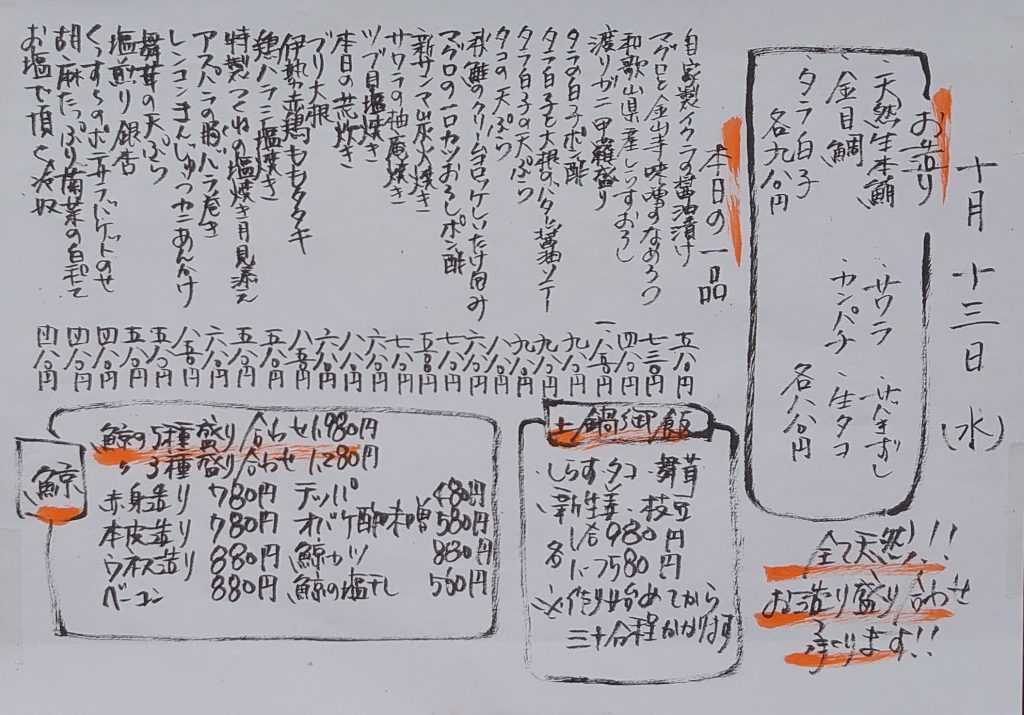 十月十三日(水)
お造り
・天然生本鮪
・金目鯛
・タラ白子
各九八〇円
・サワラ
・カンパチ・生タコ
各八八〇円
全て天然!!
お造り盛り合わせ
承ります!!
本日の一品
自家製イクラの醤油漬け 五八〇円
マグロと金山寺味噌のなめろう 七三〇円
和歌山県産しらすおろし 四八〇円
渡りガニ甲羅盛り 一、八五〇円
タラの白子ポン酢 九八〇円
タラ白子と大根のバター醤油ソテー 九八〇円
タラ白子の天ぷら 九八〇円
タコの天ぷら 八八〇円
秋鮭のクリームコロッケしいたけ包み 六八〇円
マグロの一口カツおろしポン酢 七八〇円
新サンマ炭火焼き
サワラの柚庵焼き 七八〇円
ツブ貝塩焼き 六八〇円
本日の荒炊き 八八〇円
ブリ大根 六八〇円
伊勢赤鶏ももタタキ 八五〇円
鶏ハラミ塩焼き 五八〇円
特製つくねの塩焼き月見添え 五八〇円
アスパラの豚バラ巻き 六八〇円
レンコンまんじゅうカニあんかけ 八五〇円
舞茸の天ぷら 五八〇円
塩煎り銀杏 五八〇円
くんずらのポテサラバゲットのせ 四八〇円
胡麻たっぷり菊菜の白和え 四八〇円
お塩で頂く冷奴 四八〇円
土鍋御飯
・しらす・タコ・舞茸
・新生姜・枝豆
各 1合980円
1.5つ580円
※作り始めてから
三十分程かかります
鯨
鯨の5種盛り合わせ1,980円
〃3種盛り合わせ1,280円
赤身造り 780円 テッパ 480円
本皮造り 780円 オバケ酢味噌 580円
ウネス造り 880円 鯨カツ 880円
ベーコン 880円 鯨の塩干し 560円